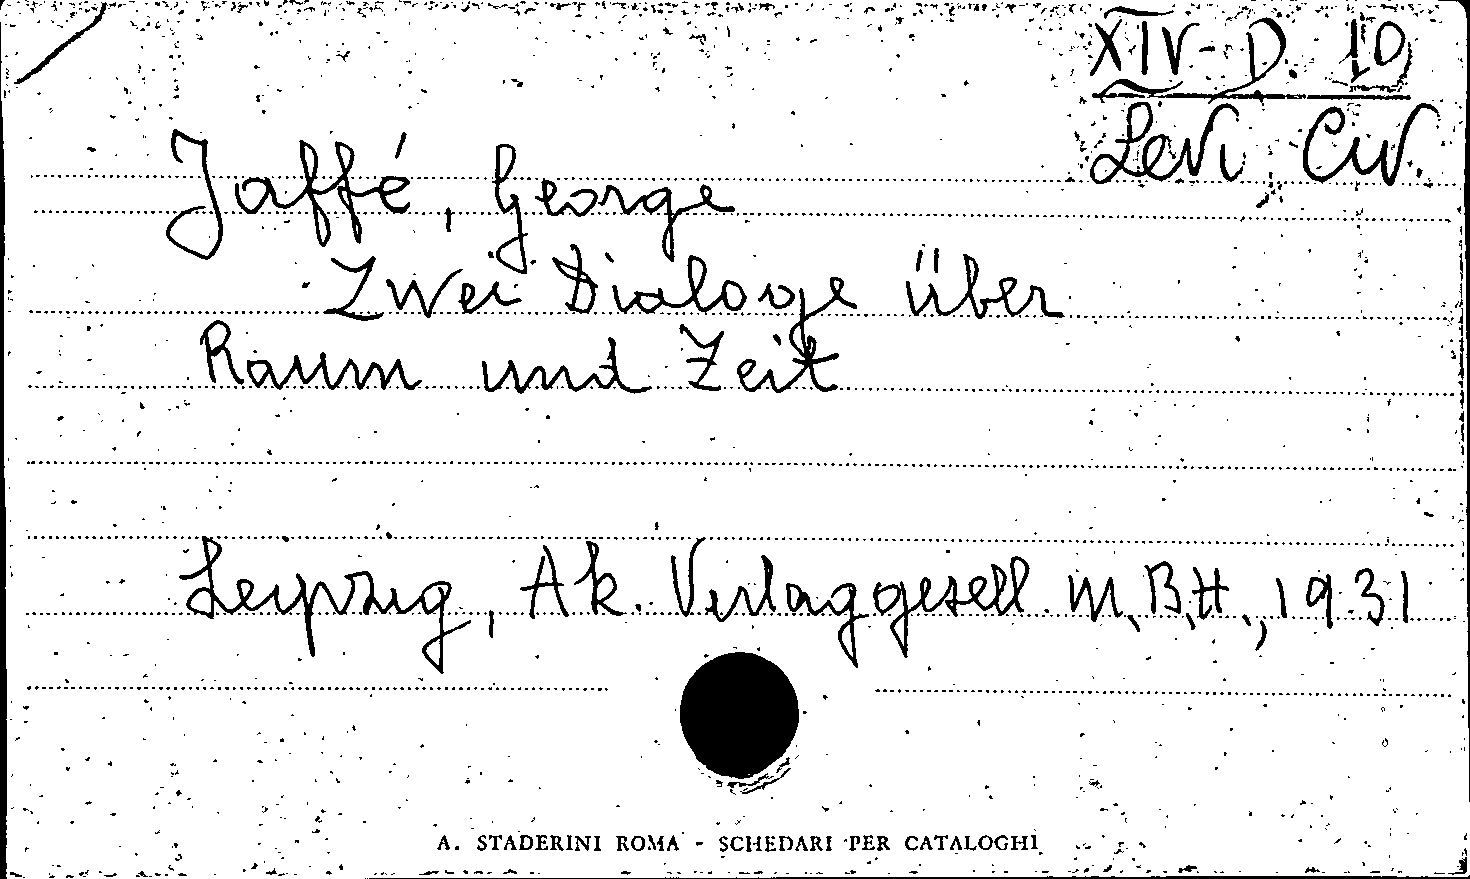 XIV-D. 10
Levi Civ.
Jaffé, George
Zwei Dialoge über
Raum und Zeit
Leipzig, Ak. Verlaggesell. m.B.H., 1931
A. STADERINI ROMA - SCHEDARI PER CATALOGHI